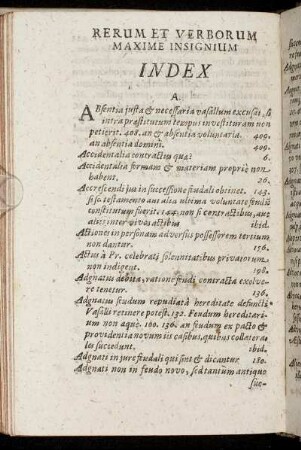 RERUM ET VERBORUM
MAXIME INSIGNIUM
INDEX
A.
ABsentia justa & necessaria vasallum excusat, si
intra præstitutum tempus investituram non
petierit. 408. an & absentia voluntaria. 409.
an absentia domini. 409.
Accidentalia contractûs quæ? 6.
Accidentalia formam & materiam propriè non
habent. 26.
Accrescendi jus in successione feudali obtinet. 143.
si ex testamento aut alia ultima voluntate feudum
constitutum fuerit. 144. non si contractibus, aut
aliis inter vivos actibus ibid.
Actiones in personam adversus possessorem tertium
non dantur. 156.
Actus à Pr. celebrati solennitatibus privatorum
non indigent. 198.
Adgnatus debita, ratione feudi contracta exolve-
re tenetur. 136.
Adgnatus feudum repudiatâ hereditate defuncti
Vasalli retinere potest. 132. Feudum hereditari-
um non æquè. 160. 136. an feudum ex pacto &
providentia novum iis casibus, quibus collatera-
les succedunt. ibid.
Adgnati in jure feudali qui sint & dicantur. 180.
Adgnati non in feudo novo, sed tantùm antiquo
suc-